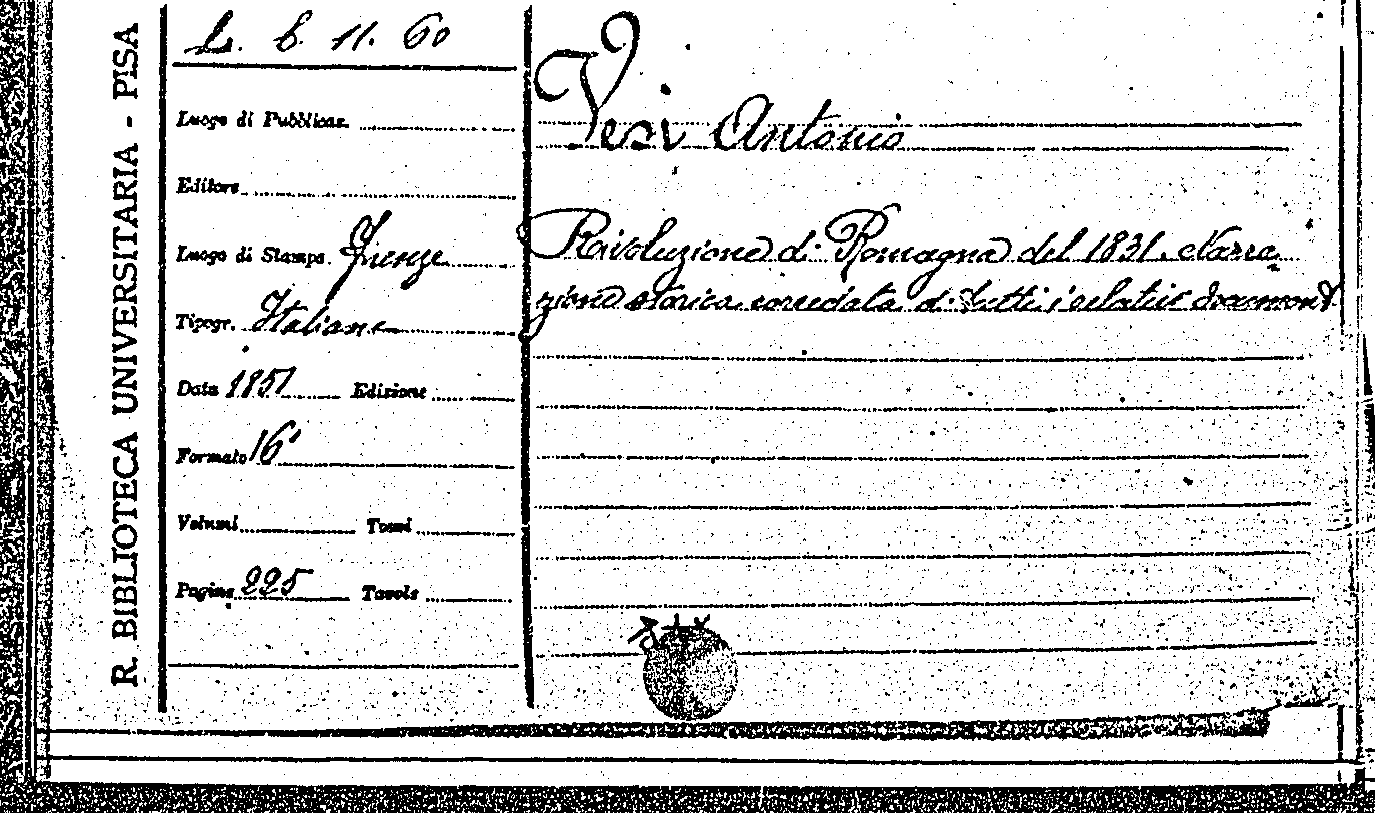 R. BIBLIOTECA UNIVERSITARIA - PISA
L. b. 11. 60
Luogo di Pubblicaz.
Editore
Luogo di Stampa Firenze
Tipogr. Italiana
Data 1851 Edizione
Formato 16°
Volumi Tomi
Pagine 225 Tavole
Vesi Antonio
Rivoluzione di Romagna del 1831. Narra-
zione storica corredata di tutti i relativi documenti